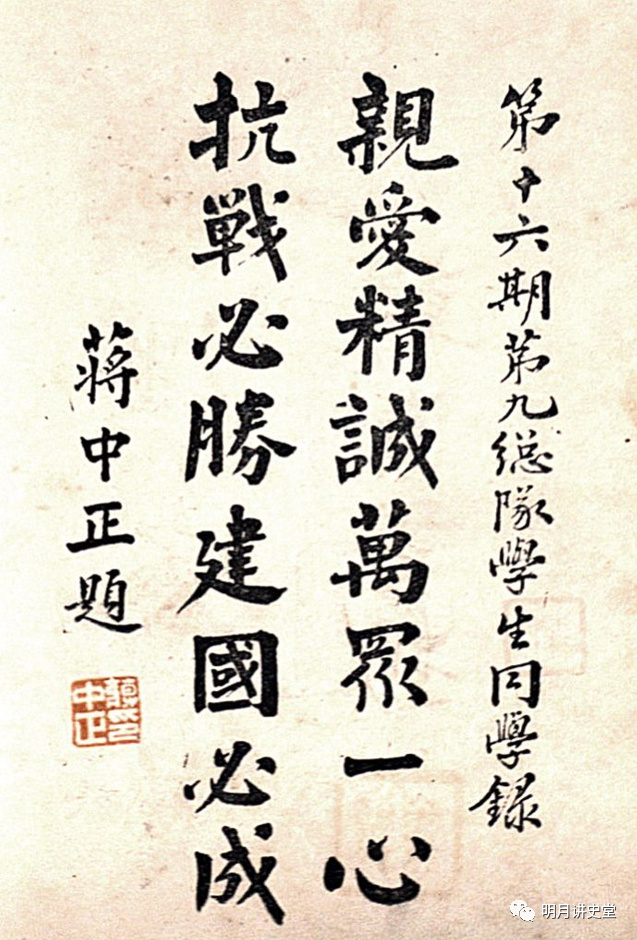 第十六期第九總隊學生同學录
親愛精誠萬眾一心
抗戰必勝建國必成
蔣中正題
蔣中正印
明月讲史堂